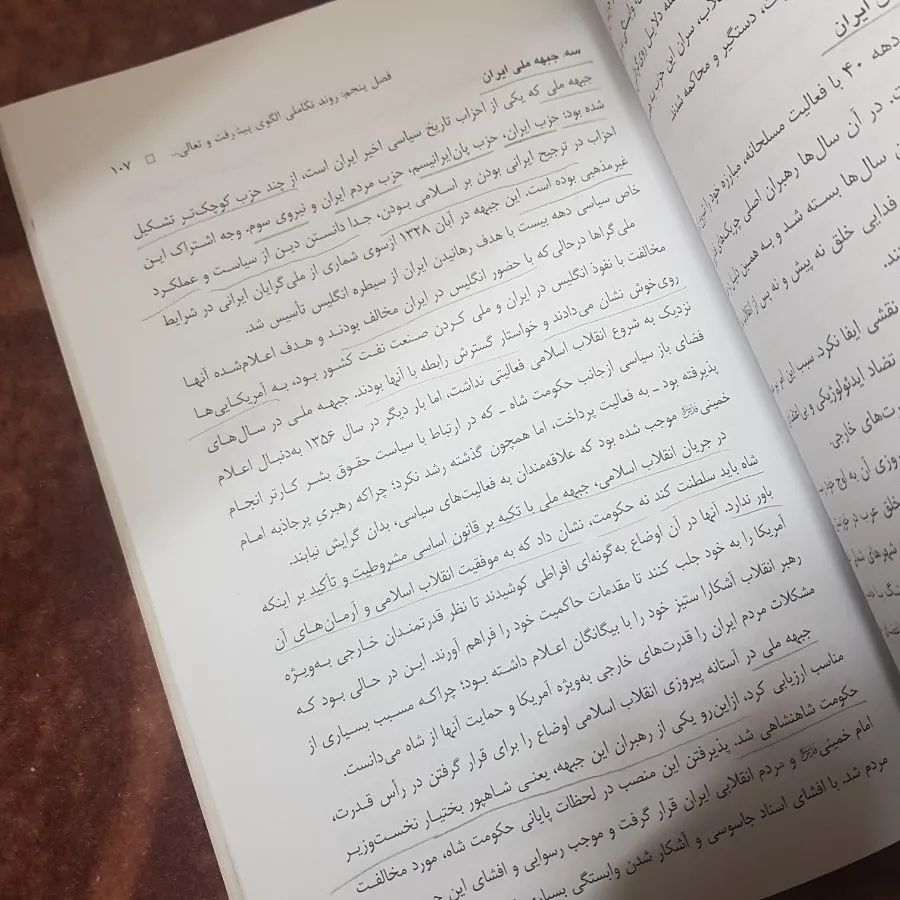 فصل پنجم: روند تکاملی الگوی پیشرفت و تعالی... □ ۱۰۷
سه. جبهه ملی ایران
جبهه ملی که یکی از احزاب تاریخ سیاسی اخیر ایران است، از چند حزب کوچک‌تر تشکیل
شده بود: حزب ایران، حزب پان‌ایرانیسم، حزب مردم ایران و نیروی سوم. وجه اشتراک این
احزاب در ترجیح ایرانی بودن بر اسلامی بودن، جدا دانستن دین از سیاست و عملکرد
غیرمذهبی بوده است. این جبهه در آبان ۱۳۲۸ ازسوی شماری از ملی‌گرایان ایرانی در شرایط
خاص سیاسی دهه بیست با هدف رهانیدن ایران از سیطره انگلیس تأسیس شد.
ملی گراها درحالی که با حضور انگلیس در ایران مخالف بودند و هدف اعلام‌شده آنها
مخالفت با نفوذ انگلیس در ایران و ملی کردن صنعت نفت کشور بود، به آمریکایی‌ها
روی‌خوش نشان می‌دادند و خواستار گسترش رابطه با آنها بودند. جبهه ملی در سال‌های
نزدیک به شروع انقلاب اسلامی فعالیتی نداشت، اما بار دیگر در سال ۱۳۵۶ به‌دنبال اعلام
فضای باز سیاسی ازجانب حکومت شاه ـ که در ارتباط با سیاست حقوق بشر کارتر انجام
پذیرفته بود ـ به فعالیت پرداخت، اما همچون گذشته رشد نکرد؛ چراکه رهبری پرجاذبه امام
خمینی موجب شده بود که علاقه‌مندان به فعالیت‌های سیاسی، بدان گرایش نیابند.
در جریان انقلاب اسلامی، جبهه ملی با تکیه بر قانون اساسی مشروطیت و تأکید بر اینکه
شاه باید سلطنت کند نه حکومت، نشان داد که به موفقیت انقلاب اسلامی و آرمان‌های آن
باور ندارد. آنها در آن اوضاع به‌گونه‌ای افراطی کوشیدند تا نظر قدرتمندان خارجی به‌ویژه
آمریکا را به خود جلب کنند تا مقدمات حاکمیت خود را فراهم آورند. این در حالی بود که
رهبر انقلاب آشکارا ستیز خود را با بیگانگان اعلام داشته بود؛ چراکه مسبب بسیاری از
مشکلات مردم ایران را قدرت‌های خارجی به‌ویژه آمریکا و حمایت آنها از شاه می‌دانست.
جبهه ملی در آستانه پیروزی انقلاب اسلامی اوضاع را برای قرار گرفتن در رأس قدرت،
مناسب ارزیابی کرد، ازاین‌رو یکی از رهبران این جبهه، یعنی شاهپور بختیار نخست‌وزیر
حکومت شاهنشاهی شد. پذیرفتن این منصب در لحظات پایانی حکومت شاه، مورد مخالفت
امام خمینی و مردم انقلابی ایران قرار گرفت و موجب رسوایی و افشای این
مردم شد. با افشای اسناد جاسوسی و آشکار شدن وابستگی
سران این حزب
دستگیر و محاکمه شدند.
ایران
دهه ۴۰ با فعالیت مسلحانه، مبارزه خود را
در آن سال‌ها رهبران اصلی
سال‌ها بسته شد و به همین
فدایی خلق نه پیش و نه پس از
نقشی ایفا نکرد.
تضاد ایدئولوژیکی و
خارجی.
روزی آن به اوج
خلق عرب در
شهرهای